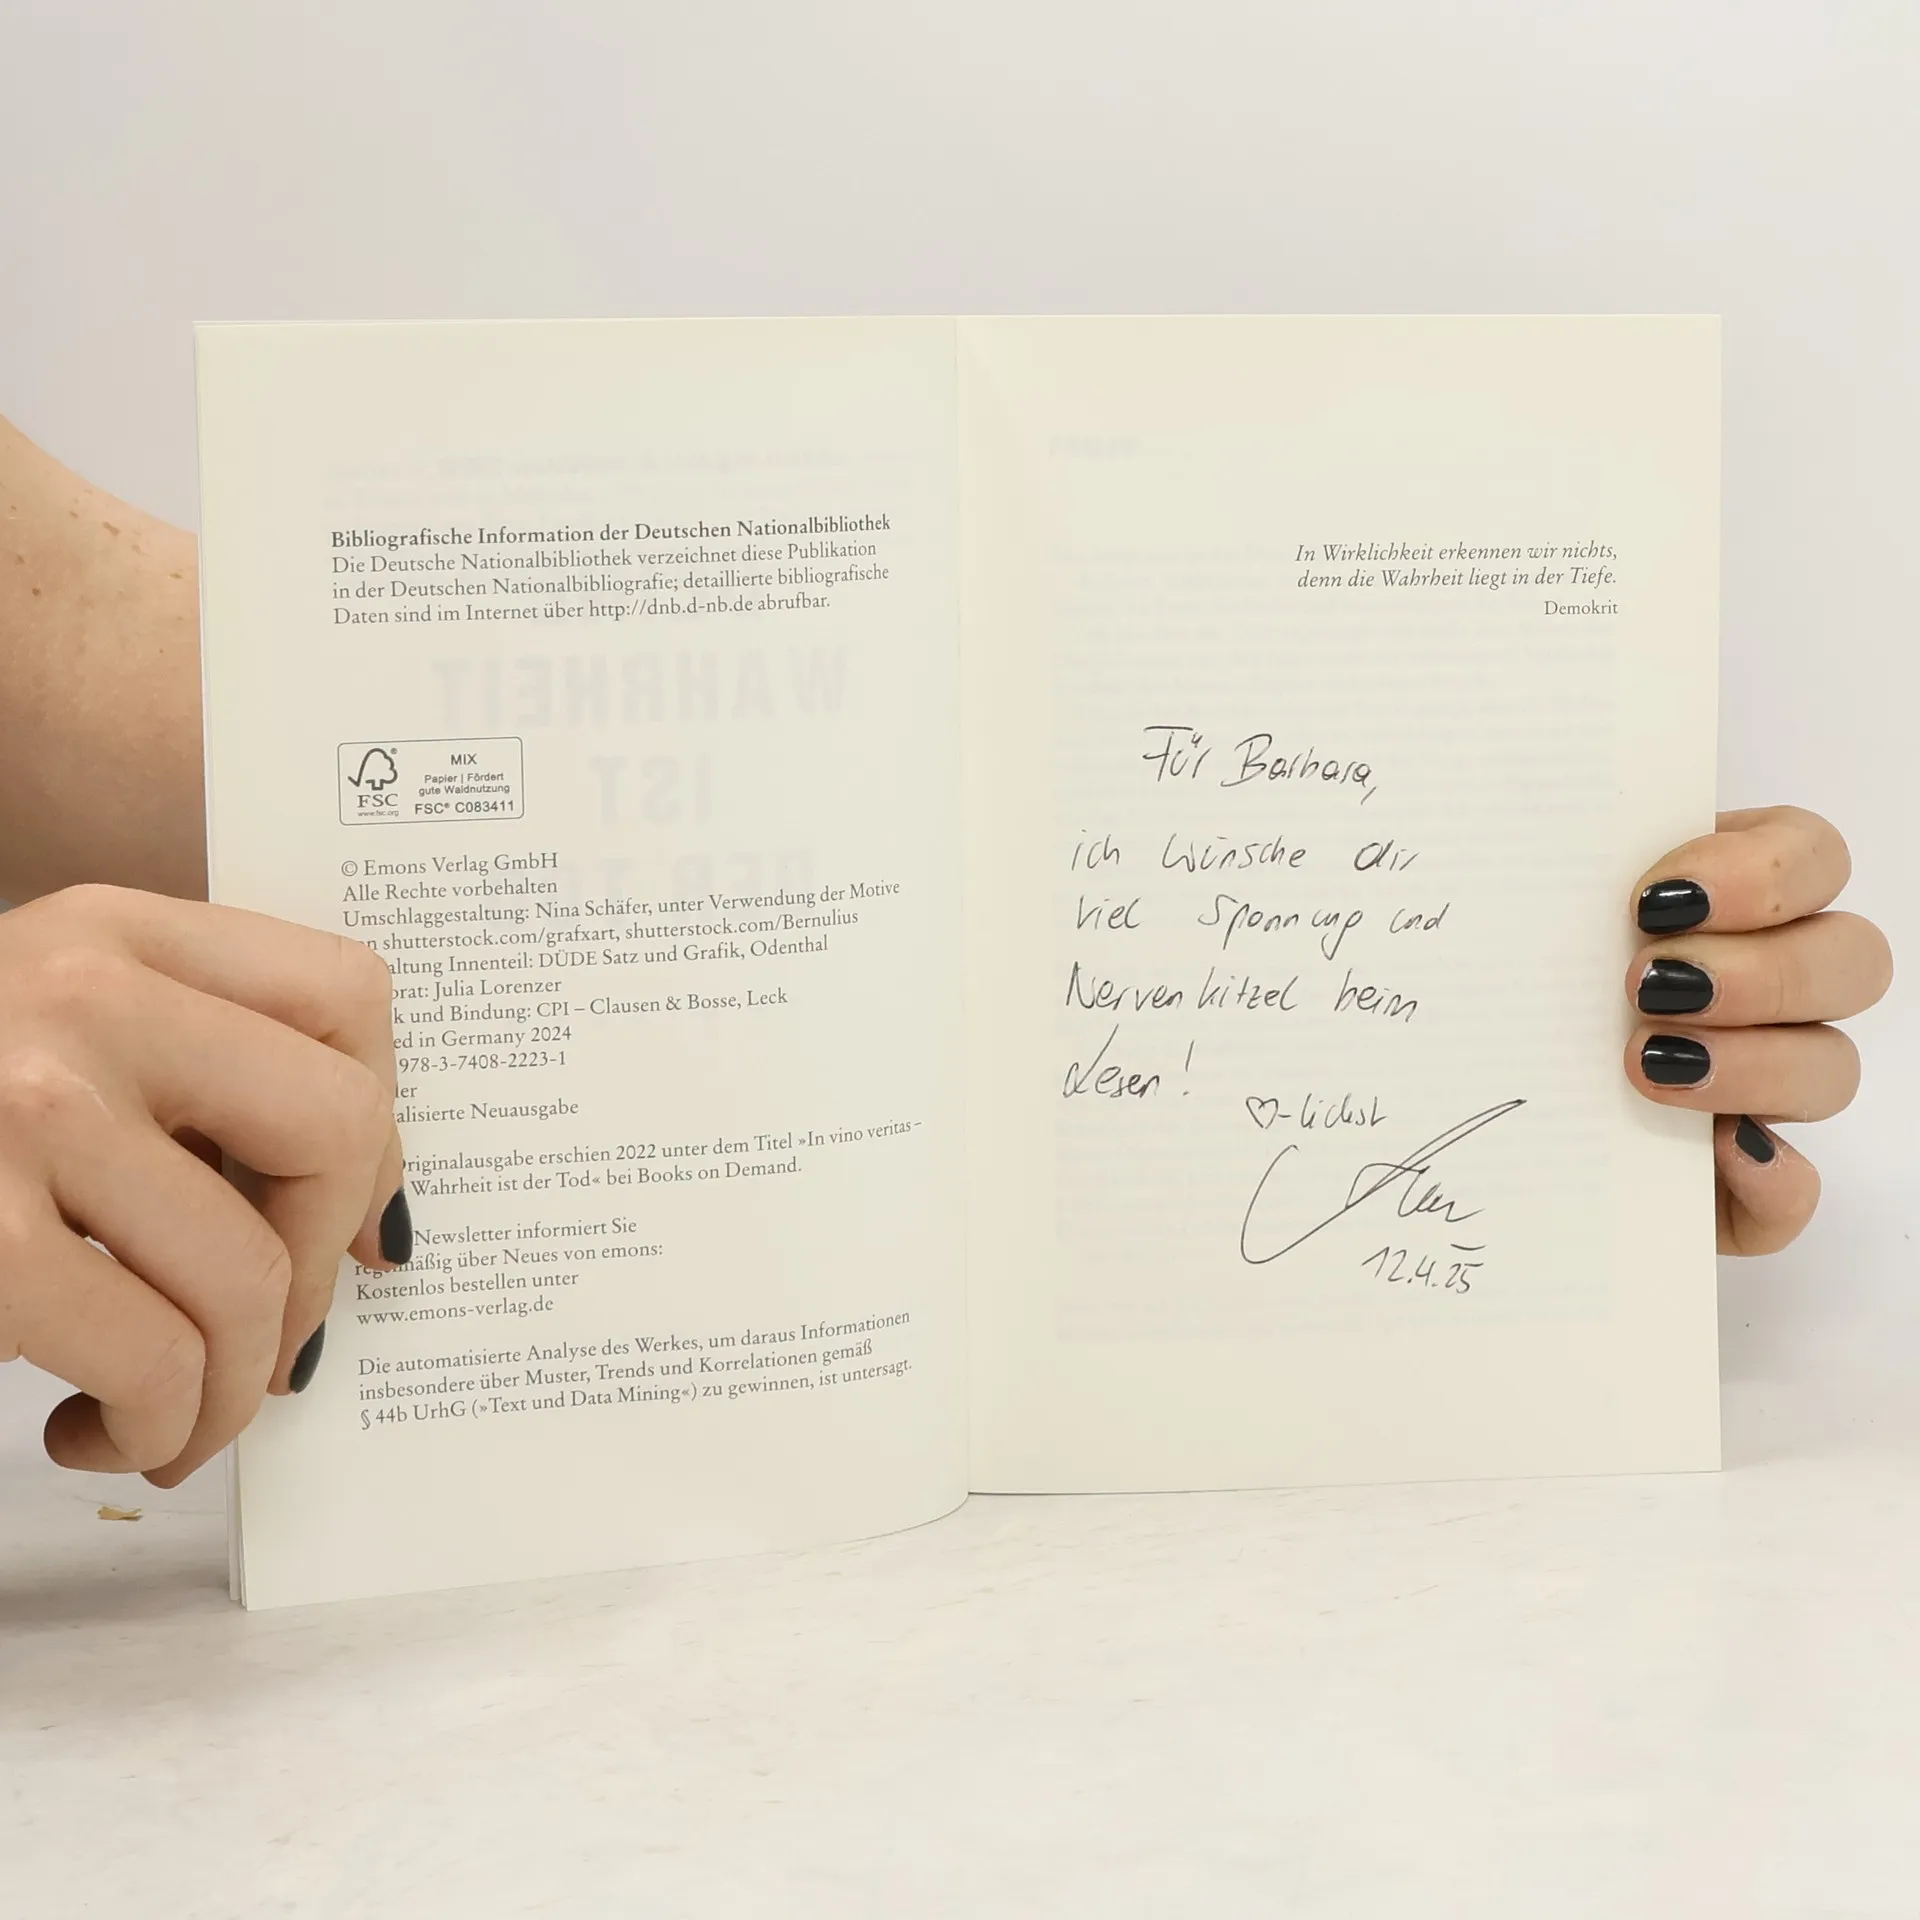 Bibliografische Information der Deutschen Nationalbibliothek
Die Deutsche Nationalbibliothek verzeichnet diese Publikation
in der Deutschen Nationalbibliografie; detaillierte bibliografische
Daten sind im Internet über http://dnb.d-nb.de abrufbar.
WAHRHEIT
IST
FSC
www.fsc.org
MIX
Papier | Fördert
gute Waldnutzung
FSC® C083411
© Emons Verlag GmbH
Alle Rechte vorbehalten
Umschlaggestaltung: Nina Schäfer, unter Verwendung der Motive
shutterstock.com/grafxart, shutterstock.com/Bernulius
altung Innenteil: DÜDE Satz und Grafik, Odenthal
orat: Julia Lorenzer
k und Bindung: CPI – Clausen & Bosse, Leck
ed in Germany 2024
978-3-7408-2223-1
ler
alisierte Neuausgabe
riginalausgabe erschien 2022 unter dem Titel »In vino veritas –
Wahrheit ist der Tod« bei Books on Demand.
Newsletter informiert Sie
regelmäßig über Neues von emons:
Kostenlos bestellen unter
www.emons-verlag.de
Die automatisierte Analyse des Werkes, um daraus Informationen
insbesondere über Muster, Trends und Korrelationen gemäß
§ 44b UrhG (»Text und Data Mining«) zu gewinnen, ist untersagt.
In Wirklichkeit erkennen wir nichts,
denn die Wahrheit liegt in der Tiefe.
Demokrit
Für Barbara,
ich wünsche dir
viel Spannung und
Nervenkitzel beim
Lesen!
♡-lichst
12.4.25